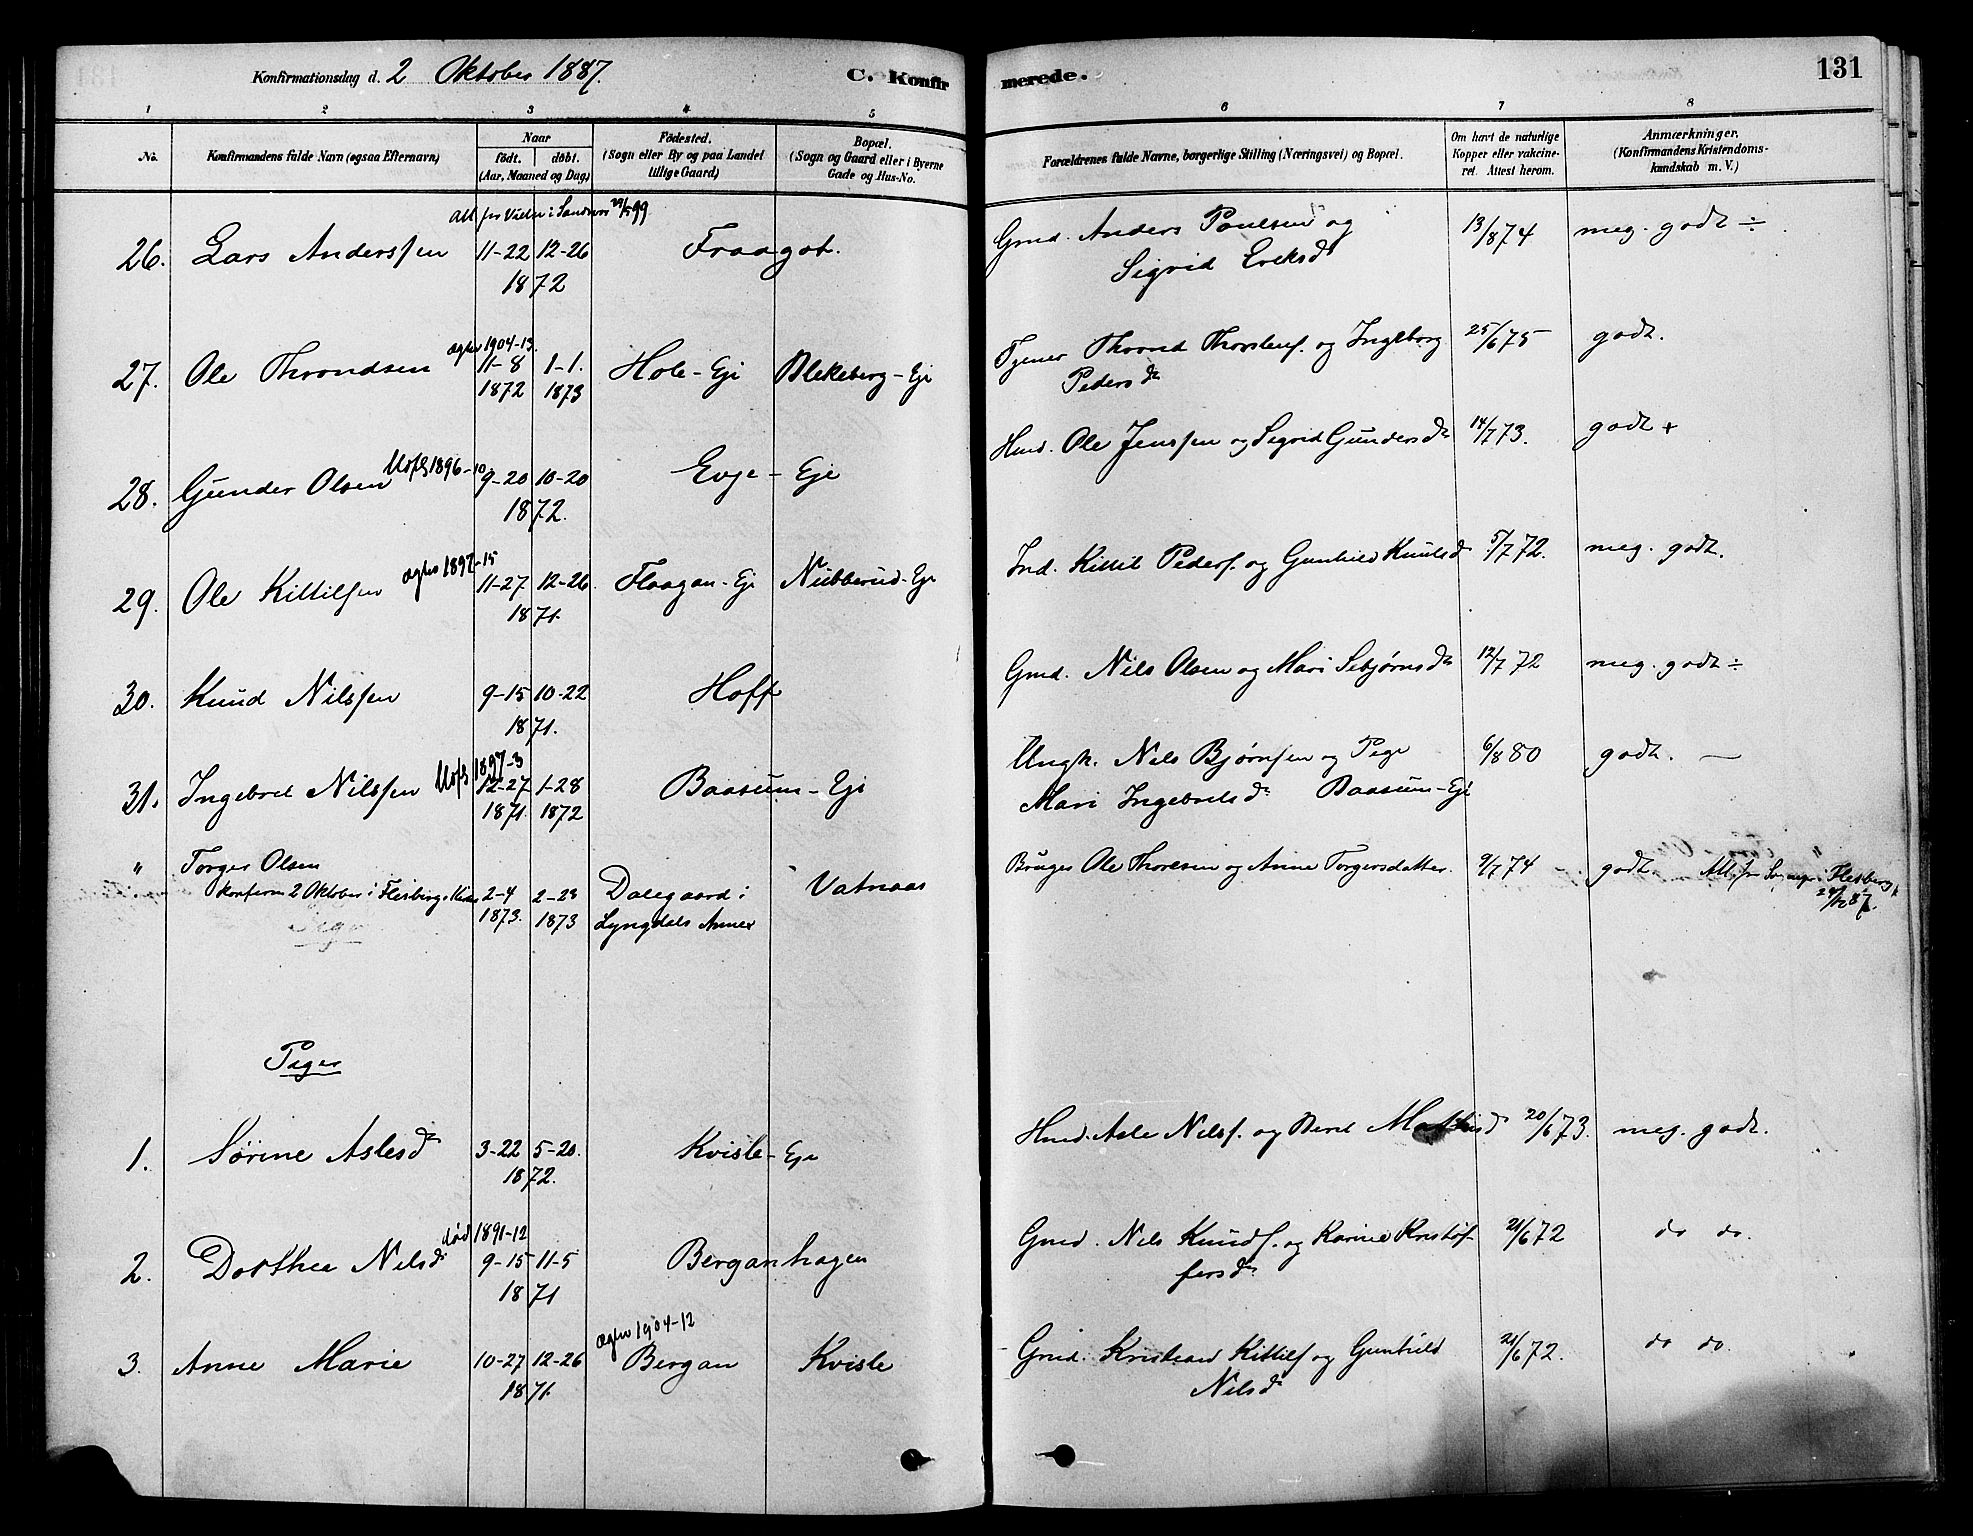 Konfirmationsdag d. 2 Oktober 1887.
C. Konfirmerede.
131
1 2 3 4 5 6 7 8
No.
Konfirmandens fulde Navn (ogsaa Efternavn)
Naar
født. døbt.
(Aar, Maaned og Dag)
Fødested.
(Sogn eller By og paa Landet
tillige Gaard)
Bopæl.
(Sogn og Gaard eller i Byerne
Gade og Hus-No.
Forældrenes fulde Navne, borgerlige Stilling (Næringsvei) og Bopæl.
Om havt de naturlige
Kopper eller vakcine-
ret. Attest herom.
Anmærkninger.
(Konfirmandens Kristendoms-
kundskab m. V.)
26. Lars Anderssen 11-22 12-26 Fraagot. Gmd. Anders Poulsen og 13/8 74 meg. godt ÷
1872 Sigrid Eriksd
27. Ole Throndsen 11-8 1-1. Hole-Eje Blekeberg-Eje Tjener Thrond Thorstens. og Ingeborg 25/6 75 godt.
ægtev 1904-13.
1872 1873 Pedersd
28. Gunder Olsen 1896-10 9-20 10-20 Evje-Eje Hmd. Ole Jenssen og Sigrid Gundersd 14/7 73. godt +
1872.
29. Ole Kittilsen ægtev 1897-15 11-27 12-26 Flaagan-Eje Nubberud-Eje Ind. Kittil Peders. og Gunhild Knutsd 5/7 72. meg. godt.
1871.
30. Knud Nilssen 9-15 10-22 Hoff Gmd. Nils Olsen og Mari Sebjørnsd 12/7 72 meg. godt ÷
1871.
31. Ingebret Nilssen 1897-3 12-27 1-28 Baasum-Eje Ungk. Nils Bjørnsen og Pige 6/8 80 godt. —
1871. 1872 Mari Ingebretsd Baasum-Eje
" Torger Olsen
konfirm. 2 Oktober i Flesberg Kirke 2-4 2-23 Dalegaard i Vatnaas Bruger Ole Thoresen og Anne Torgersdatter 9/7 74 godt. Flesberg
1873. 1873 Lyngdals Annex
Piger
1. Sørine Aslesd 3-22 5-20. Kvisle-Eje Hmd. Asle Nils. og Berit 20/6 73. meg. godt.
1872.
død 1891-12
2. Dorthea Nilsd 9-15 11-5 Berganhagen Gmd. Nils Knuds. og Karine Kristof- 21/6 72 do do.
1871 fersd
ægtev 1904-12
3. Anne Marie 10-27 12-26 Bergan Kvisle Gmd. Kristian Kittils. og Gunhild 21/6 72. do do.
1871. Nilsd